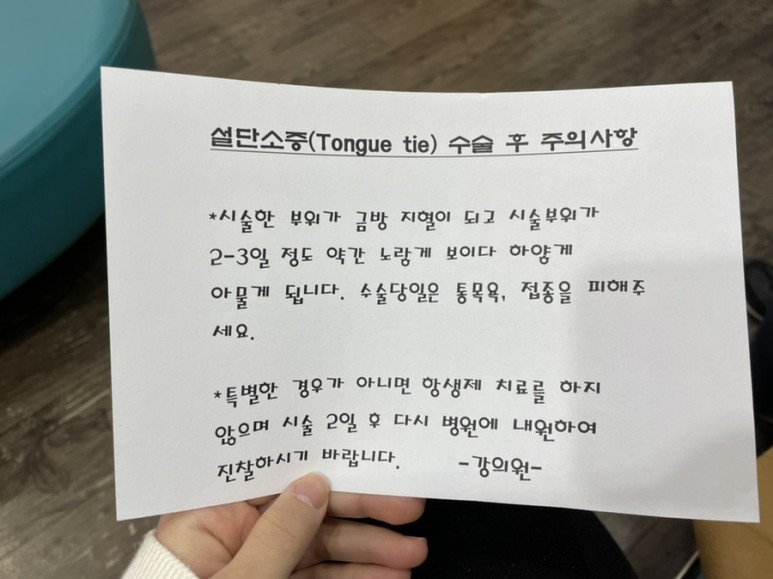 설단소증(Tongue tie) 수술 후 주의사항
*시술한 부위가 금방 지혈이 되고 시술부위가
2-3일 정도 약간 노랗게 보이다 하얗게
아물게 됩니다. 수술당일은 통목욕, 접종을 피해주
세요.
*특별한 경우가 아니면 항생제 치료를 하지
않으며 시술 2일 후 다시 병원에 내원하여
진찰하시기 바랍니다. -강의원-